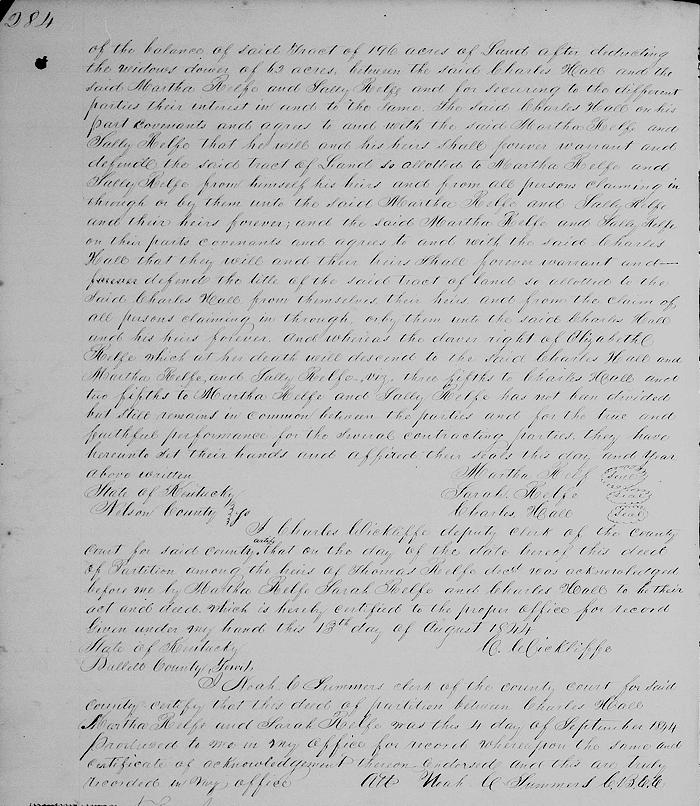 284
of the balance of said Tract of 196 acres of Land after deducting
the widows dower of 62 acres, between the said Charles Hall and the
said Martha Relfe and Sally Relfe and for securing to the different
parties their interest in and to the same. The said Charles Hall on his
part covenants and agrees to and with the said Martha Relfe and
Sally Relfe that he will and his heirs shall forever warrant and
defend the said tract of Land so allotted to Martha Relfe and
Sally Relfe from himself his heirs and from all persons claiming in
through or by them unto the said Martha Relfe and Sally Relfe
and their heirs forever; and the said Martha Relfe and Sally Relfe
on their parts covenants and agrees to and with the said Charles
Hall that they will and their heirs Shall forever warrant and
forever defend the title of the said tract of land so allotted to the
said Charles Hall from themselves their heirs and from the claim of
all persons claiming in through or by them unto the said Charles Hall
and his heirs forever. And whereas the dower right of Elizabeth
Relfe which at her death will descend to the said Charles Hall and
Martha Relfe, and Sally Relfe, viz. three fifths to Charles Hall and
two fifths to Martha Relfe and Sally Relfe has not ben divided
but still remains in common between the parties and for the true and
faithful performance for the several contracting parties, they have
hereunto set their hands and affixed their seals this day and year
above written Martha Relf Seal
State of Kentucky Sarah Relfe Seal
Nelson County Charles Hall Seal
I Charles Wickliffe deputy clerk of the county
court for said county certify that on the day of the date hereof this deed
of Partition among the heirs of Thomas Relfe decd was acknowledged
before me by Martha Relfe Sarah Relfe and Charles Hall to be their
act and deed which is hereby certified to the proper office for record
Given under my hand this 13th day of August 1844
State of Kentucky C. Wickliffe
Bullitt County
I Noah C Summers clerk of the county court for said
county certify that this deed of partition between Charles Hall
Martha Relfe and Sarah Relfe was this 4 day of September 1844
produced to me in my office for record whereupon the same and
certificate of acknowledgement thereon endorsed and this are truly
recorded in my office Att Noah C Summers C.B.C.C